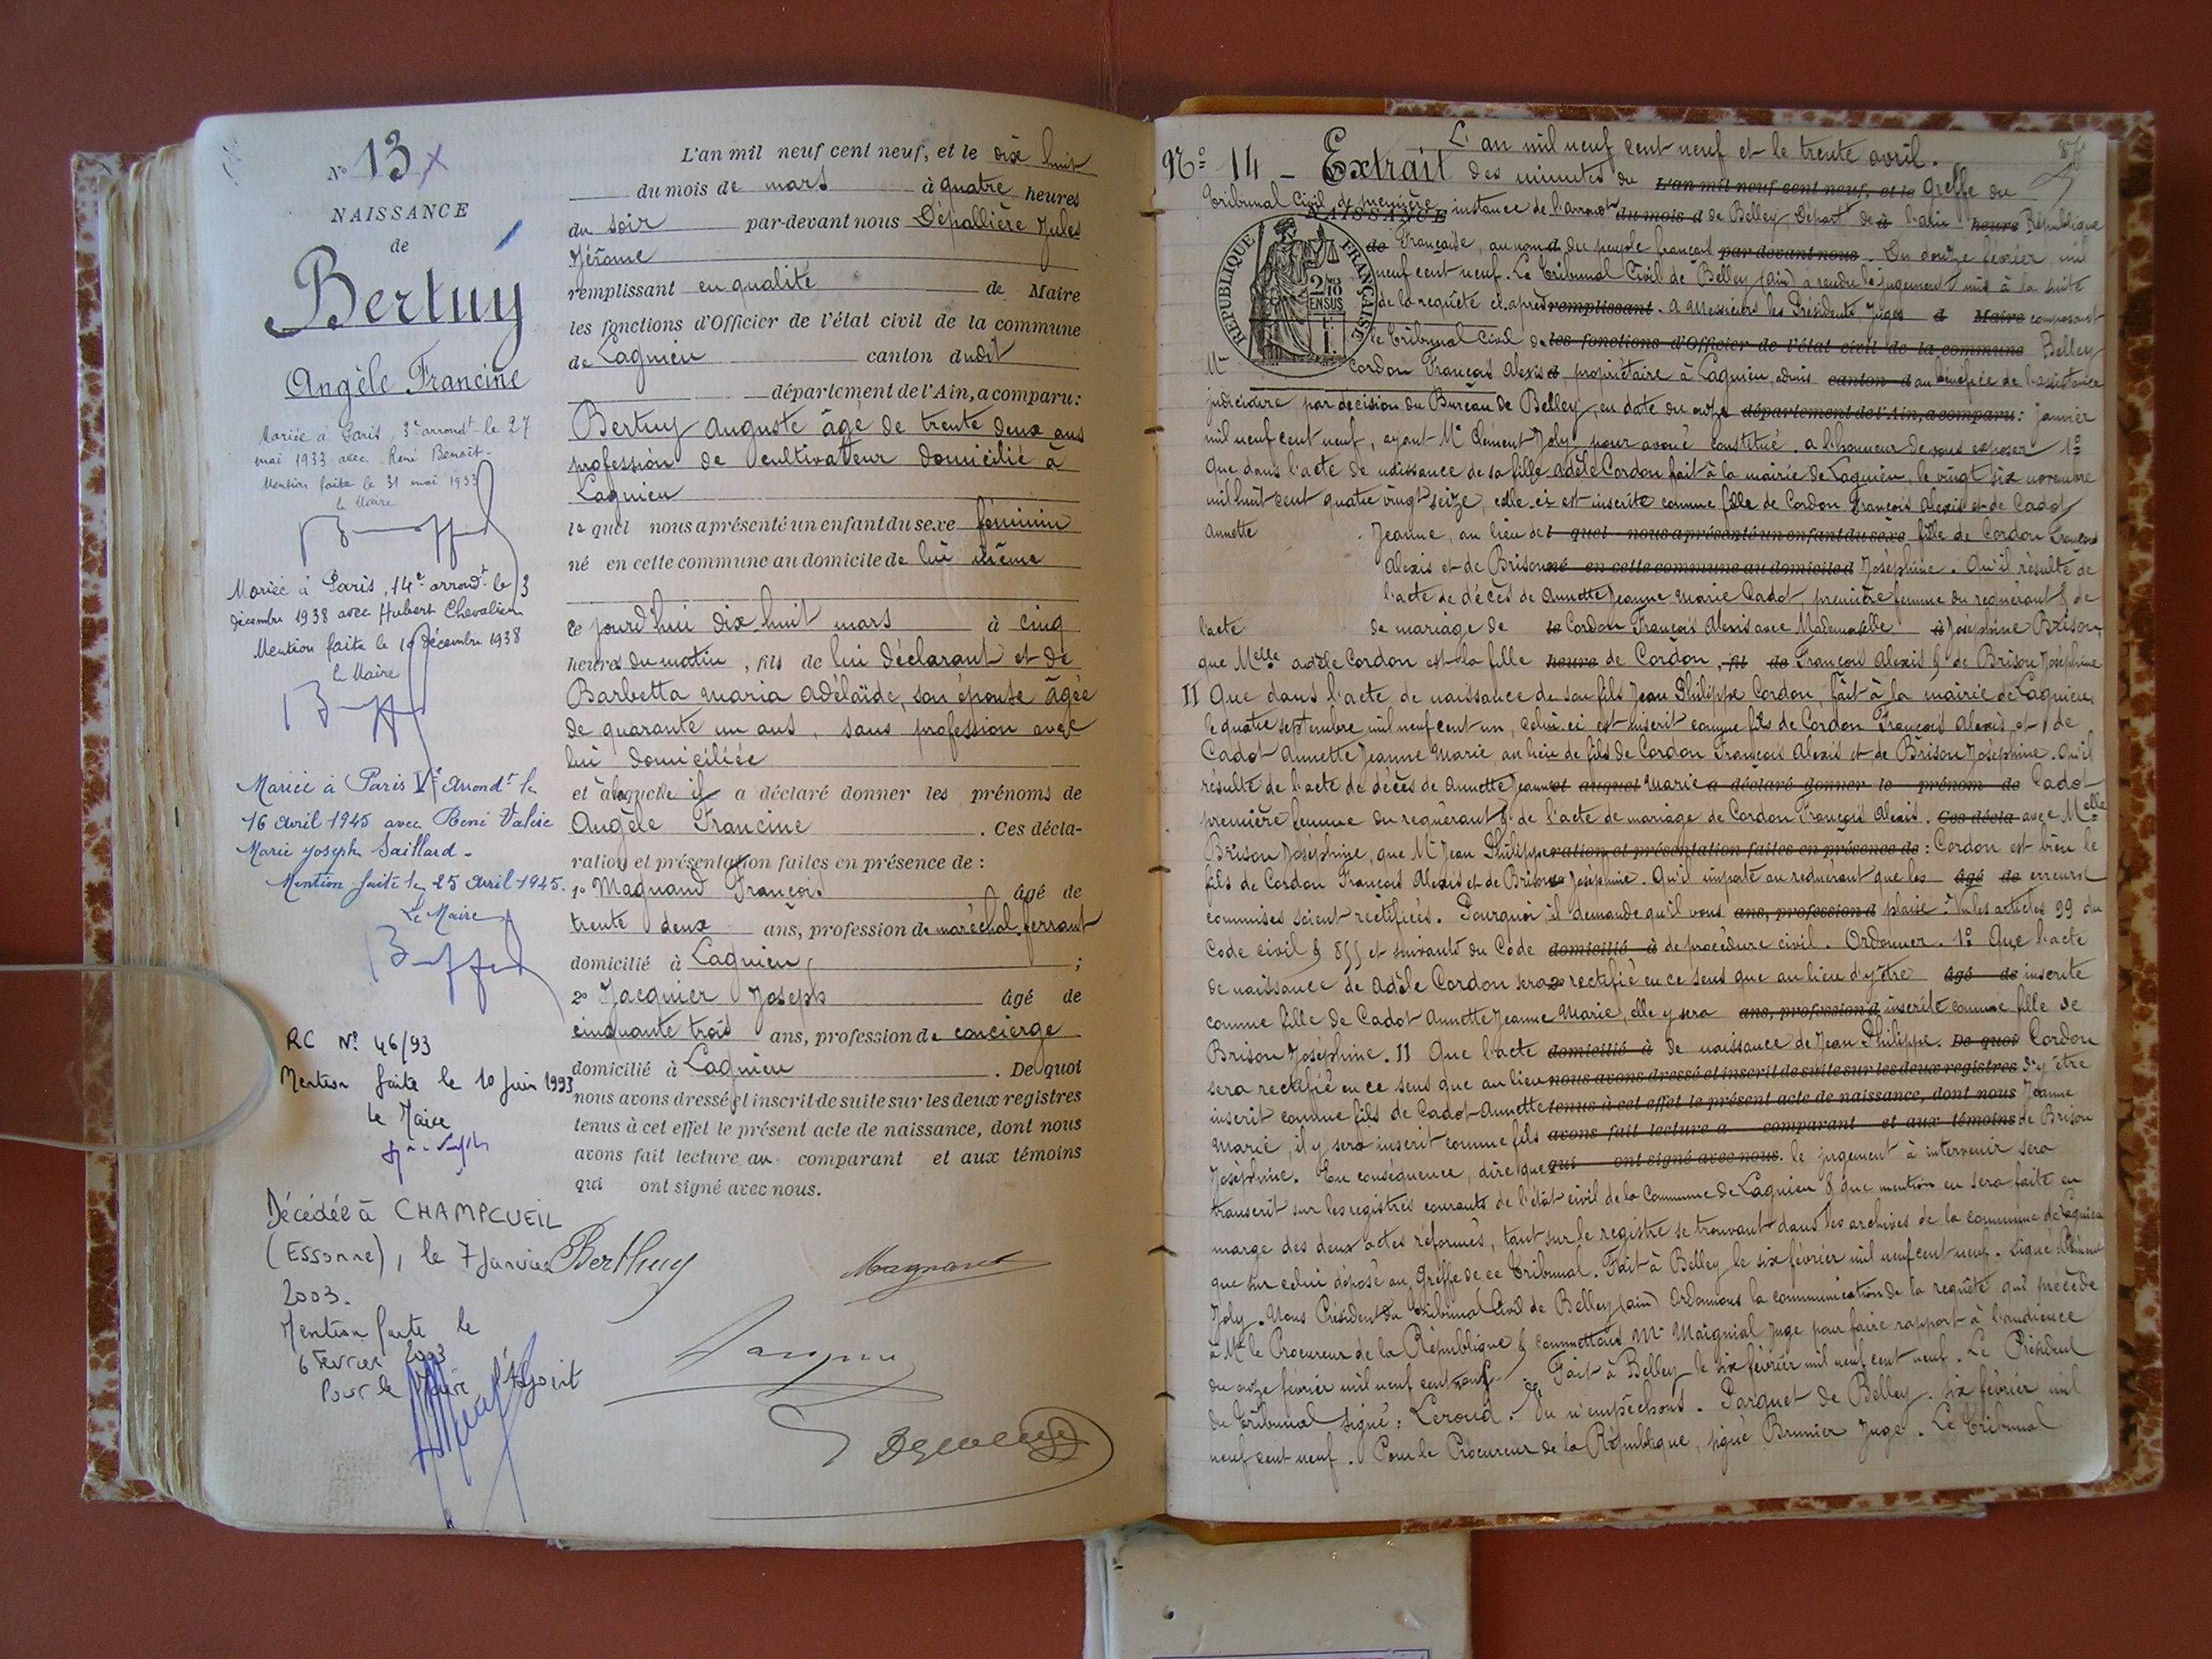 N° 13
NAISSANCE
de
Bertuy
Angèle Francine
Mariée à Paris, 3e arrondt le 27
mai 1933 avec René Benoit.
Mention faite le 31 mai 1933
le Maire
Mariée à Paris, 14e arrondt le 3
décembre 1938 avec Hubert Chevalier
Mention faite le décembre 1938
le Maire
Mariée à Paris Ve Arrondt le
16 Avril 1945 avec René Valérie
Marie Joseph Saillard.
Mention faite le 25 Avril 1945.
Le Maire
RC N° 46/93
Mention faite le 10 Juin 1993
le Maire
Décédée à CHAMPCUEIL
(Essonne), le 7 Janvier
2003.
Mention faite le
6 Fevrier 2003
Pour le Maire l'Adjoint
L'an mil neuf cent neuf, et le dix huit
du mois de mars à quatre heures
du soir par-devant nous Dépallière Jules
Jérôme
remplissant en qualité de Maire
les fonctions d'Officier de l'état civil de la commune
de Lagnieu canton dudit
département de l'Ain, a comparu:
Bertuy Auguste âgé de trente deux ans
profession de cultivateur domicilié à
Lagnieu
lequel nous a présenté un enfant du sexe féminin
né en cette commune au domicile de lui même
ce jourd'hui dix-huit mars à cinq
heures du matin, fils de lui déclarant et de
Barbetta Maria Adélaïde, son épouse âgée
de quarante un ans, sans profession avec
lui domiciliée
et à laquelle il a déclaré donner les prénoms de
Angèle Francine. Ces décla-
ration et présentation faites en présence de :
1° Magnand François âgé de
trente deux ans, profession de maréchal-ferrant
domicilié à Lagnieu ;
2° Jacquier Joseph âgé de
cinquante trois ans, profession de concierge
domicilié à Lagnieu. De quoi
nous avons dressé et inscrit de suite sur les deux registres
tenus à cet effet le présent acte de naissance, dont nous
avons fait lecture au comparant et aux témoins
qui ont signé avec nous.
Berthuy Magnand
L'an mil neuf cent neuf et le trente avril.
N° 14 - Extrait des minutes du L'an mil neuf cent neuf, et le Greffe du
Tribunal Civil de première instance de l'arrondt du mois d de Belley Départ de à l'Ain heure République
NAISSANCE
de Française, au nom d du peuple français par-devant nous. Du douze février mil
neuf cent neuf. Le Tribunal Civil de Belley (Ain) a rendu le jugement mis à la suite
RÉPUBLIQUE FRANÇAISE
de la requête ci après remplissant. A Messieurs les Présidents, Juges d Maire composant
le Tribunal Civil de les fonctions d'Officier de l'état civil de la commune Belley
Mr Cordon François Alexis d propriétaire à Lagnieu, admis canton d au bénéfice de l'assistance
judiciaire par décision du Bureau de Belley en date du onze département de l'Ain, a comparu: janvier
mil neuf cent neuf, ayant Me Clément Joly pour avoué constitué. A l'honneur de vous exposer 1°
Que dans l'acte de naissance de sa fille Adèle Cordon fait à la mairie de Lagnieu, le vingt six novembre
mil huit cent quatre vingt seize, celle-ci est inscrite comme fille de Cordon François Alexis et de Cadot
Annette Jeanne, au lieu de l quel nous a présenté un enfant du sexe fille de Cordon François
Alexis et de Brison né en cette commune au domicile d Joséphine. Qu'il résulte de
l'acte de décès de Annette Jeanne Marie Cadot, première femme du requérant & de
l'acte de mariage de le Cordon François Alexis avec Mademoiselle à Joséphine Brison,
que Melle Adèle Cordon est la fille heure de Cordon, fil de François Alexis & de Brison Joséphine
II Que dans l'acte de naissance de son fils Jean Philippe Cordon, fait à la mairie de Lagnieu,
le quatre septembre mil neuf cent un, celui-ci est inscrit comme fils de Cordon François Alexis et de
Cadot Annette Jeanne Marie, au lieu de fils de Cordon François Alexis et de Brison Joséphine. Qu'il
résulte de l'acte de décès de Annette Jeanne et auquel Marie a déclaré donner le prénom de Cadot
première femme du requérant & de l'acte de mariage de Cordon François Alexis. Ces décla avec Melle
Brison Joséphine, que Mr Jean Philippe ration et présentation faites en présence de : Cordon est bien le
fils de Cordon François Alexis et de Brison Joséphine. Qu'il importe au requérant que les âgé de erreurs
commises soient rectifiées. Pourquoi il demande qu'il vous ans, profession d plaise. Vu les articles 99 du
Code civil & 855 et suivants du Code domicilié à de procédure civil. Ordonner. 1° Que l'acte
de naissance de Adèle Cordon sera 2° rectifié en ce sens que au lieu d'y être âgé de inscrite
comme fille de Cadot Annette Jeanne Marie, elle y sera ans, profession d inscrite comme fille de
Brison Joséphine. II Que l'acte domicilié à de naissance de Jean Philippe. De quoi Cordon
sera rectifié en ce sens que au lieu nous avons dressé et inscrit de suite sur les deux registres d'y être
inscrit comme fils de Cadot Annette tenus à cet effet le présent acte de naissance, dont nous Jeanne
Marie, il y sera inscrit comme fils avons fait lecture a comparant et aux témoins de Brison
Joséphine. En conséquence, dire que qui ont signé avec nous. le jugement à intervenir sera
transcrit sur les registres courants de l'état civil de la Commune de Lagnieu & que mention en sera faite en
marge des deux actes réformés, tant sur le registre se trouvant dans les archives de la commune de Lagnieu
que sur celui déposé au Greffe de ce Tribunal. Fait à Belley le six février mil neuf cent neuf. Signé:
Joly. Nous Président du Tribunal Civil de Belley (Ain) Ordonnons la communication de la requête qui précède
à Mr le Procureur de la République & commettons Mr Maignial Juge pour faire rapport à l'audience
du onze février mil neuf cent neuf. Fait à Belley le six février mil neuf cent neuf. Le Président
du Tribunal signé: Leroud. Vu n'empêchons. Parquet de Belley. six février mil
neuf cent neuf. Pour le Procureur de la République, signé Brunier Juge. Le Tribunal